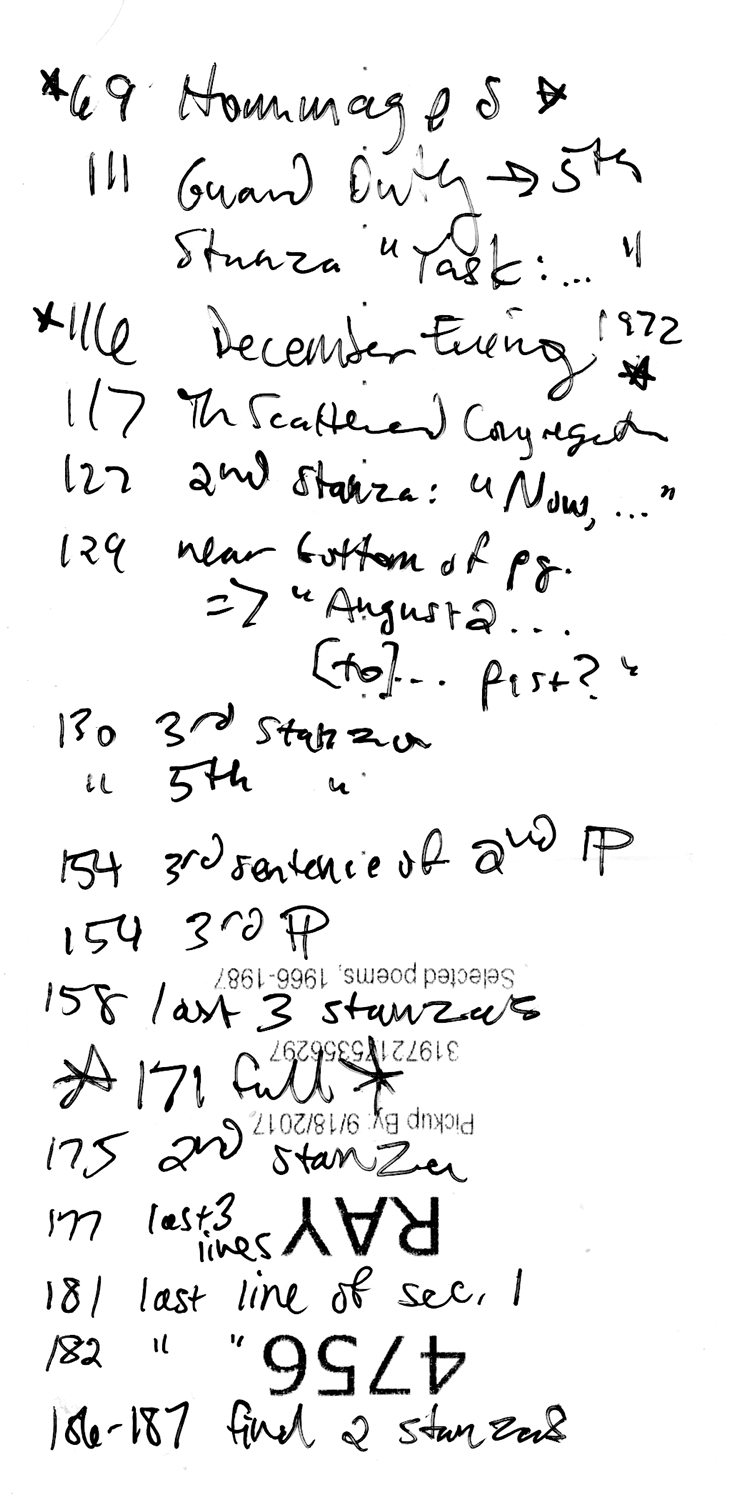 *69 Hommages *
111 Guard Duty → 5th
Stanza "Task: ... "
*116 December Evening, 1972 *
117 Th Scattered Congregation
122 2nd stanza: "Now, ..."
129 near bottom of pg.
=> "August 2 ...
[to] ... fist? "
130 3rd stanza
" 5th "
154 3rd sentence of 2nd ¶
154 3rd ¶
Selected poems, 1966-1987
158 last 3 stanzas
31972175356297
* 171 full *
Pickup By: 9/18/2017
175 2nd stanza
177 last 3
lines
RAY
181 last line of sec. 1
182 " "
4756
186-187 final 2 stanzas